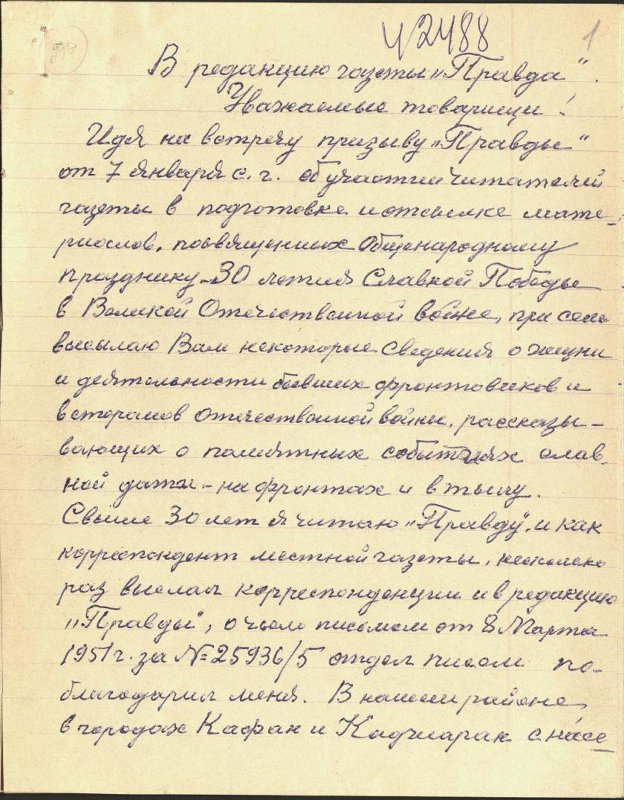 ч 2488
1
В редакцию газеты „Правда“.
Уважаемые товарищи!
Идя на встречу призыву „Правды“
от 7 января с. г. об участии читателей
газеты в подготовке и отсылке мате-
риалов, посвященных Общенародному
празднику – 30 летия Славной Победы
в Великой Отечественной войне, при семь
высылаю Вам некоторые сведения о жизни
и деятельности бывших фронтовиков и
ветеранов отечественной войны, рассказы-
вающих о памятных событиях слав-
ной даты – на фронтах и в тылу.
Свыше 30 лет я читаю „Правду“, и как
корреспондент местной газеты, несколько
раз выслал корреспонденции и в редакцию
„Правды“, о чьем письмом от 8 Марта
1951 г. за № 25936/5 отдел писем по-
благодарил меня. В нашем районе
в городах Кафан и Каджаран с насе